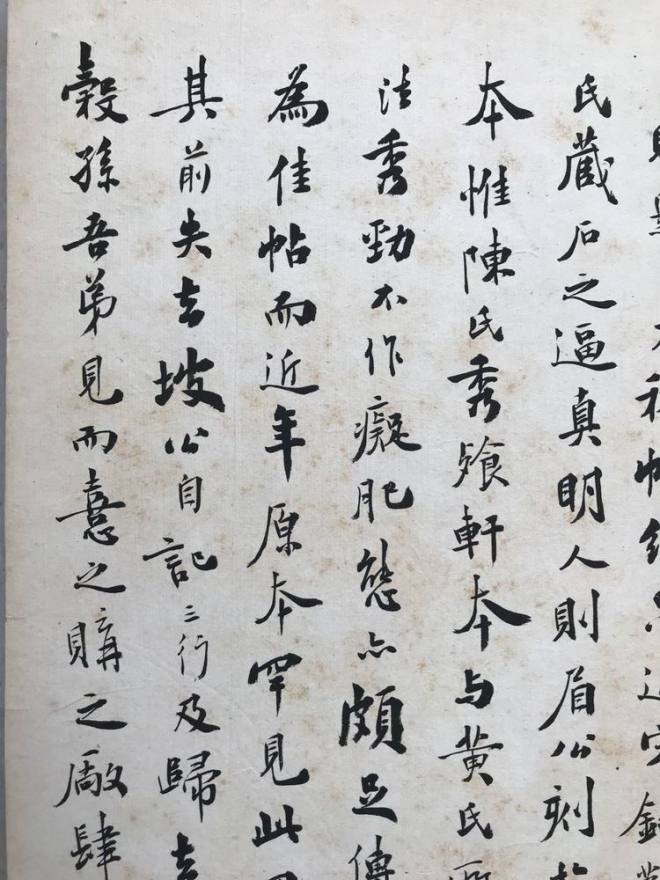 氏蔵石之逼真明人則眉公刻
本惟陳氏秀飱軒本与黄氏所
法秀勁不作癡肥態亦頗足傳
為佳帖而近年原本罕見此
其前失去坡公自記三行及歸去
穀孫吾弟見而憙之購之廠肆